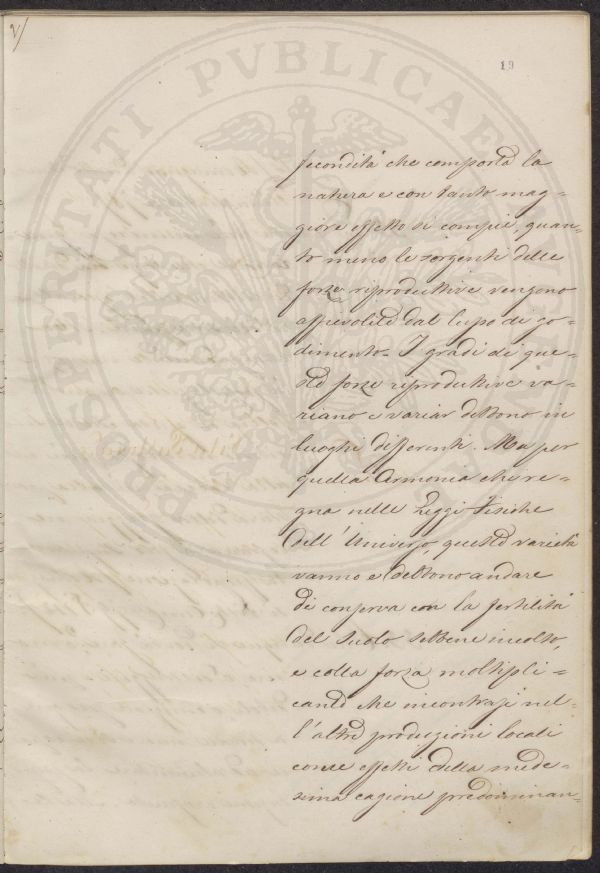 2/
19
PROSPERITATI PVBLICAE
fecondità che comporta la
natura e con tanto mag=
giore effetto si compie, quan=
to meno le sorgenti delle
forze riproduttive vengono
affievolite dal lupo di go=
dimento. I gradi di que=
ste forze riproduttive va=
riano e variar debbono in
luoghi differenti. Ma per
quella Armonia che re=
gna nelle Leggi Fisiche
dell'Universo, queste varietà
vanno e debbono andare
di conserva con la fertilità
del suolo sebbene incolto,
e colla forza moltipli=
cante che incontrasi nel=
l'altre produzioni locali
come effetti della mede=
sima cagione predominan=